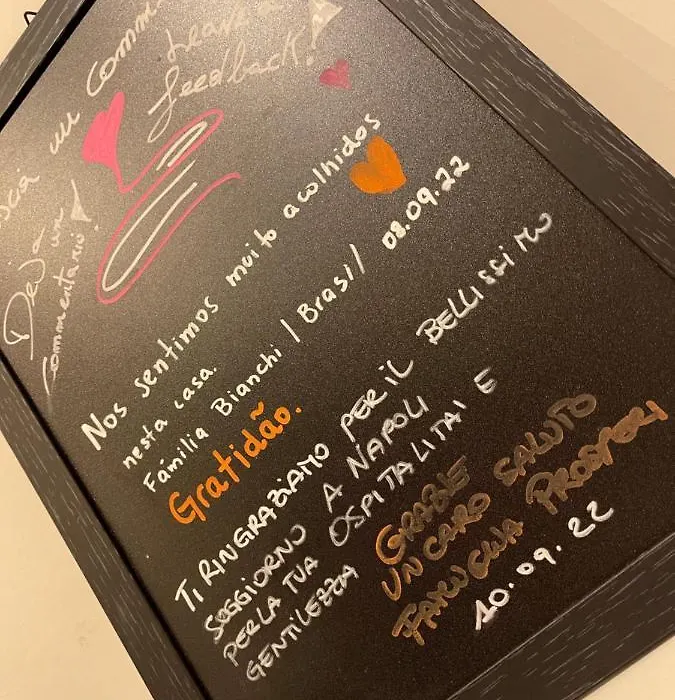 un Comm
Leave a
feedback!
Deja
un
commentario!
Nos sentimos muito acolhidos
nesta casa.
Família Bianchi | Brasil 08.09.22
Gratidão.
TI RINGRAZIAMO PER IL BELLISSIMO
SOGGIORNO A NAPOLI
PER LA TUA OSPITALITAI E
GENTILEZZA GRAZIE
UN CARO SALUTO
FAMIGLIA PROSPERI
10.09.22